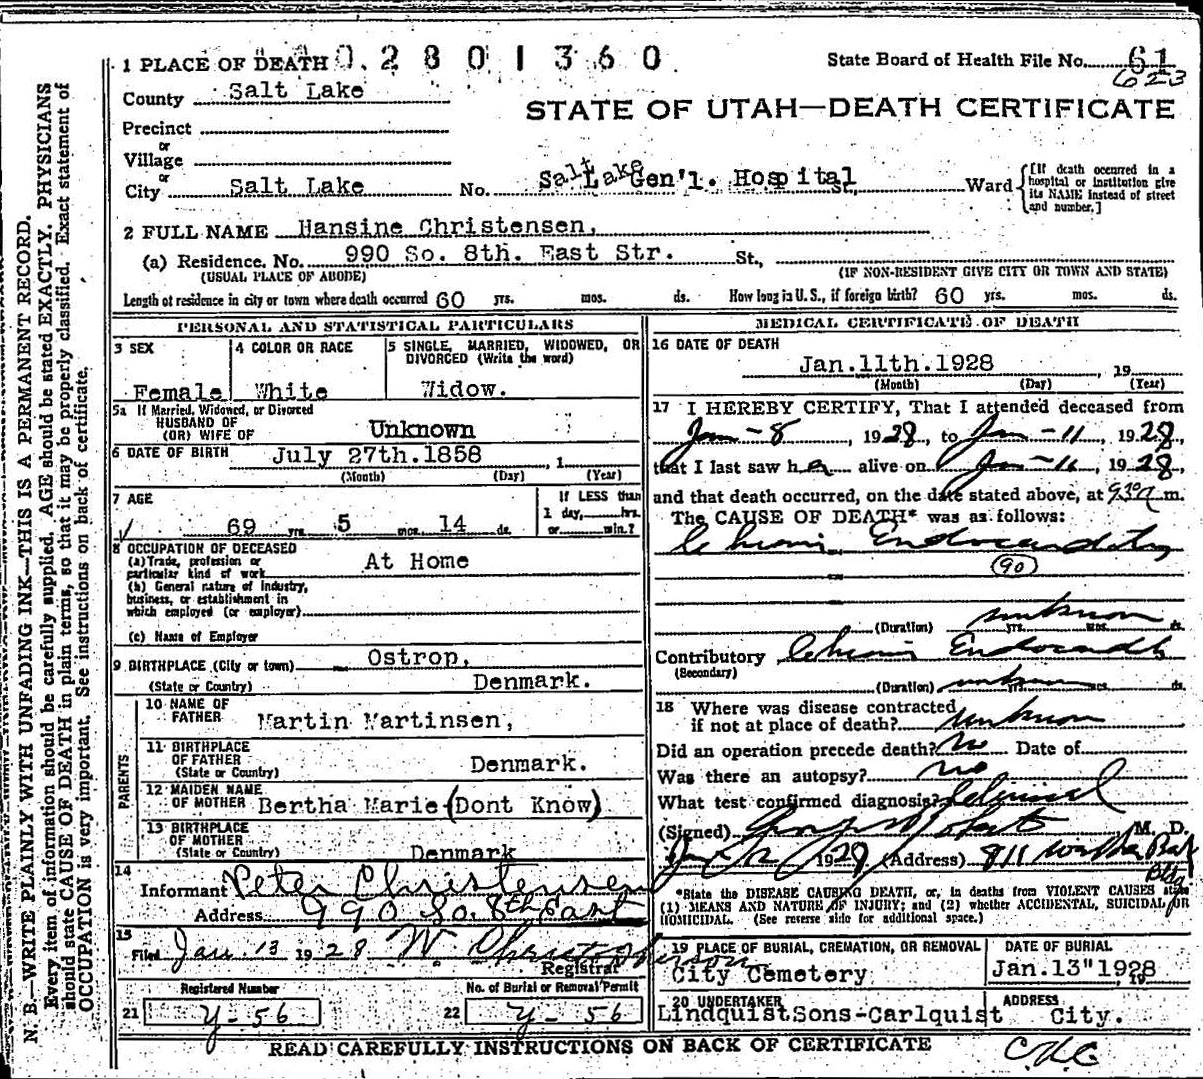 1 PLACE OF DEATH 0.2801360 State Board of Health File No. 61
623
County Salt Lake
STATE OF UTAH—DEATH CERTIFICATE
Precinct
or
Village
or
City Salt Lake No. Salt Lake Gen'l. Hospital, Ward [If death occurred in a hospital or institution give its NAME instead of street and number.]
2 FULL NAME Hansine Christensen,
(a) Residence. No. 990 So. 8th. East Str. St.,
(USUAL PLACE OF ABODE) (IF NON-RESIDENT GIVE CITY OR TOWN AND STATE)
Length of residence in city or town where death occurred 60 yrs. mos. ds. How long in U.S., if foreign birth? 60 yrs. mos. ds.
PERSONAL AND STATISTICAL PARTICULARS
3 SEX
Female
4 COLOR OR RACE
White
5 SINGLE, MARRIED, WIDOWED, OR
DIVORCED (Write the word)
Widow.
5a If Married, Widowed, or Divorced
HUSBAND OF
(OR) WIFE OF Unknown
6 DATE OF BIRTH July 27th.1858 , 1
(Month) (Day) (Year)
7 AGE
69 yrs. 5 mos. 14 ds.
If LESS than
1 day, hrs.
or min.?
8 OCCUPATION OF DECEASED
(a) Trade, profession or
particular kind of work At Home
(b) General nature of industry,
business, or establishment in
which employed (or employer)
(c) Name of Employer
9 BIRTHPLACE (City or town) Ostrop,
(State or Country) Denmark.
PARENTS
10 NAME OF
FATHER Martin Martinsen,
11 BIRTHPLACE
OF FATHER
(State or Country) Denmark.
12 MAIDEN NAME
OF MOTHER Bertha Marie (Dont Know)
13 BIRTHPLACE
OF MOTHER
(State or Country) Denmark
14
Informant Peter Christensen
Address 990 So. 8th East
15
Filed Jan. 13 1928 W. Christopherson
Registrar
Registered Number
21 Y-56
No. of Burial or Removal Permit
22 Y-56
MEDICAL CERTIFICATE OF DEATH
16 DATE OF DEATH
Jan.11th.1928 , 19
(Month) (Day) (Year)
17 I HEREBY CERTIFY, That I attended deceased from
Jan-8, 1928, to Jan-11, 1928,
that I last saw her alive on Jan-11, 1928,
and that death occurred, on the date stated above, at 930a m.
The CAUSE OF DEATH* was as follows:
Chronic Endocarditis
90
(Duration) unknown yrs. mos. ds
Contributory Chronic Endocarditis
(Secondary)
(Duration) unknown yrs. mos. ds.
18 Where was disease contracted
if not at place of death? unknown
Did an operation precede death? No Date of
Was there an autopsy? no
What test confirmed diagnosis? Clinical
(Signed) Roberts M. D.
Jan 12 1928 (Address) 811 Bldg
*State the DISEASE CAUSING DEATH, or, in deaths from VIOLENT CAUSES state
(1) MEANS AND NATURE OF INJURY; and (2) whether ACCIDENTAL, SUICIDAL OR
HOMICIDAL. (See reverse side for additional space.)
19 PLACE OF BURIAL, CREMATION, OR REMOVAL
City Cemetery
DATE OF BURIAL
Jan.13"1928 , 19
20 UNDERTAKER
LindquistSons-Carlquist
ADDRESS
City.
READ CAREFULLY INSTRUCTIONS ON BACK OF CERTIFICATE
N. B.—WRITE PLAINLY WITH UNFADING INK—THIS IS A PERMANENT RECORD.
Every item of information should be carefully supplied. AGE should be stated EXACTLY. PHYSICIANS
should state CAUSE OF DEATH in plain terms, so that it may be properly classified. Exact statement of
OCCUPATION is very important. See instructions on back of certificate.